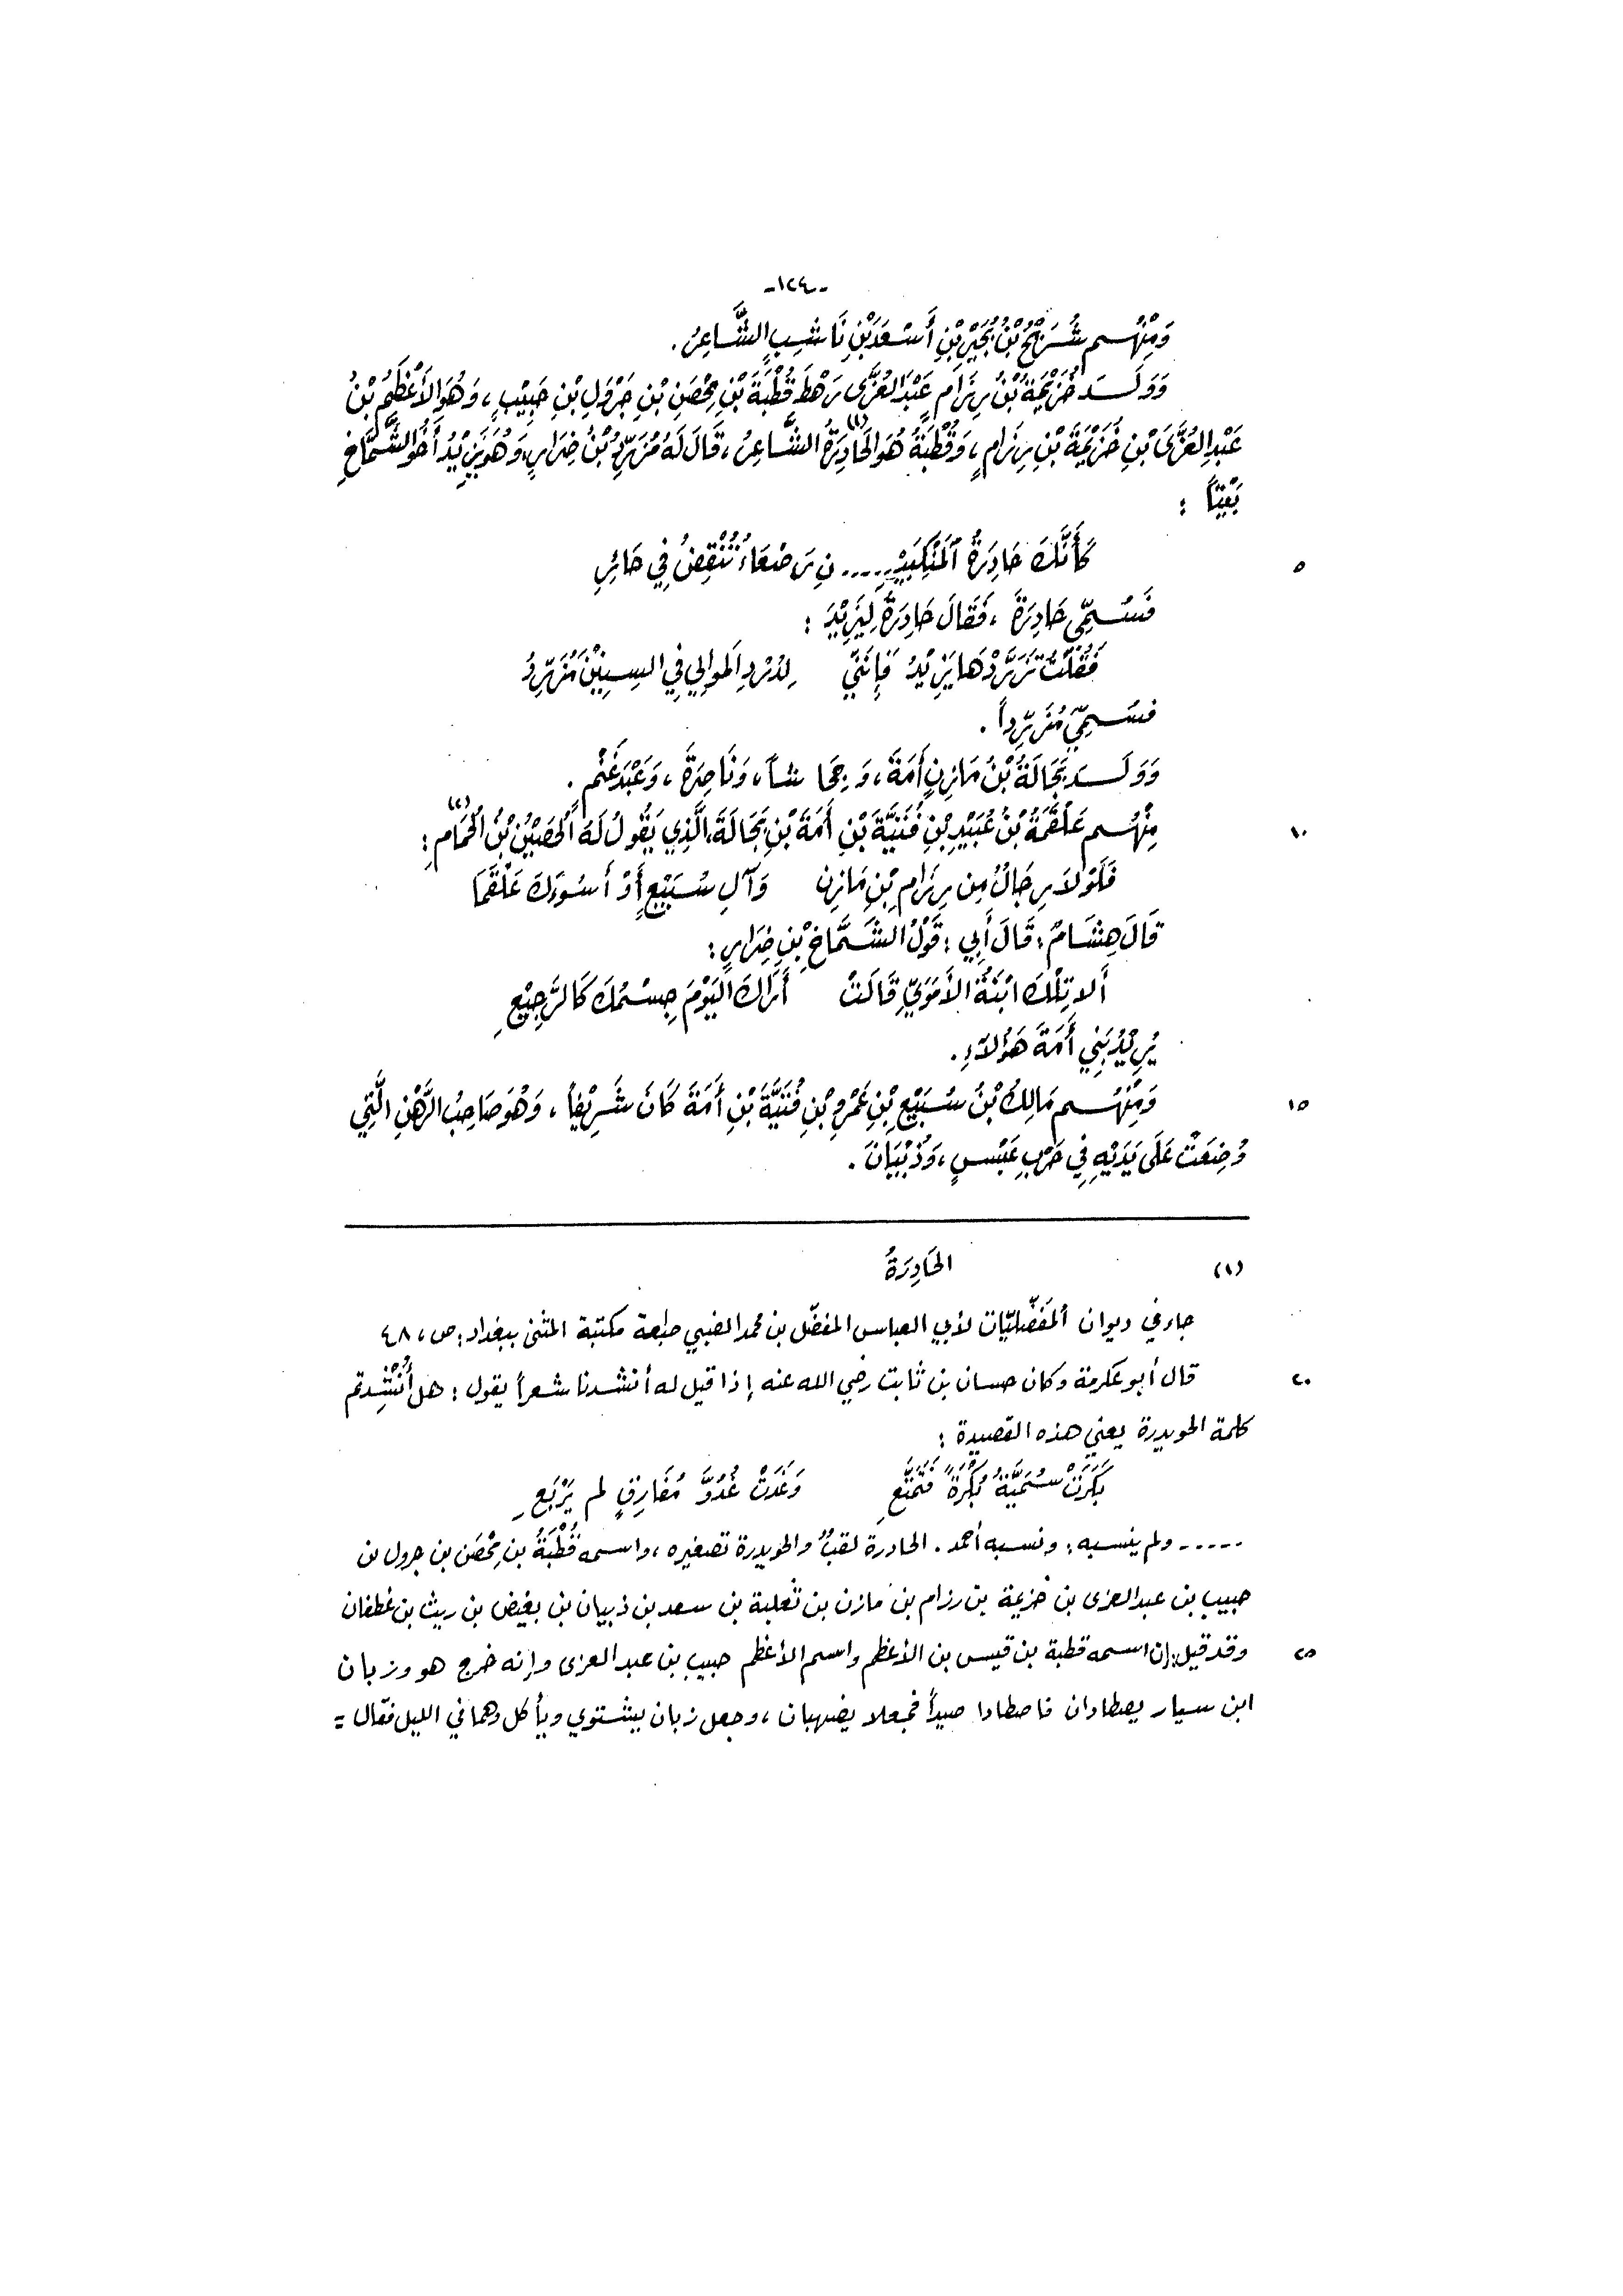 -١٢٤-
وَمِنْهُم شُرَيْحُ بْنُ بُجَيْرِ بْنِ أَسْعَدَ بْنِ نَاشِبٍ الشَّاعِرُ .
وَوَلَدَ خُزَيْمَةُ بْنُ رِزَامٍ عَبْدَ العُزَّى رَهْطَ قُطْبَةَ بْنِ مِحْصَنِ بْنِ جَرْوَلِ بْنِ حَبِيْبٍ، وَهُوَ الأَعْظَمُ بْنُ
عَبْدِ العُزَّى بْنِ خُزَيْمَةَ بْنِ رِزَامٍ، وَقُطْبَةُ هُوَ الحَادِرَةُ (١) الشَّاعِرُ، قَالَ لَهُ مُزَرِّدُ بْنُ ضِرَارٍ، وَهُوَ يَزِيْدُ أَخُو الشَّمَّاخِ
بَيْتاً :
٥ كَأَنَّكَ حَادِرَةُ المَنْكِبَيْـ ..... نِ رَصْعَاءُ تُنْقِضُ فِي حَائِرِ
فَسُمِّيَ حَادِرَةَ ، فَقَالَ حَادِرَةُ لِيَزِيْدَ :
فَقُلْتُ تَزَرَّدْهَا يَزِيْدُ فَإِنَّنِي لِدُرْدِ المَوالِي فِي السِنِيْنَ مُزَرِّدُ
فسُمِّيَ مُزَرِّداً .
وَوَلَدَ بَجَالَةُ بْنُ مَازِنٍ أَمَةَ، وَجِحَاشاً، وَنَاصِرَةَ، وَعَبْدَ غَنْمٍ .
١٠ مِنْهُم عَلْقَمَةُ بْنُ عُبَيْدِ بْنِ فُتَيَّةَ بْنِ أَمَةَ بْنِ بَجَالَةَ، الَّذِي يَقُولُ لَهُ الْحُصَيْنُ بْنُ الْحُمَامِ (٢):
فَلَوْلاَ رِجَالٌ مِن رِزَامِ بْنِ مَازِنٍ وَآلِ سُبَيْعٍ أَوْ أَسُوءَكَ عَلْقَمَا
قَالَ هِشَامٌ : قَالَ أَبِي : قَوْلُ الشَّمَّاخِ بْنِ ضِرَارٍ :
أَلا تِلْكَ ابْنَةُ الأَمَوِيِّ قَالَتْ أَرَاكَ اليَوْمَ جِسْمُكَ كَالرَّجِيْعِ
يُرِيْدُ بَنِي أَمَةَ هَؤُلاَءِ .
١٥ وَمِنْهُم مَالِكُ بْنُ سُبَيْعِ بْنِ عَمْرِو بْنِ فُتَيَّةَ بْنِ أَمَةَ كَانَ شَرِيْفاً، وَهُوَ صَاحِبُ الرَّهْنِ الَّتِي
وُضِعَتْ عَلَى يَدَيْهِ فِي حَرْبِ عَبْسٍ، وَذُبْيَانَ .
(١) الحَادِرَةُ
جاء في ديوان المُفَضَّلِيَّات لأبي العباس المفضّل بن محمد الضبي طبعة مكتبة المثنى ببغداد: ص، ٤٨
٢٠ قال أبو عكرمة وكان حسان بن ثابت رضي الله عنه إذا قيل له أنشدنا شعراً يقول : هل أُنْشِدتم
كلمة الحويدرة يعني هذه القصيدة :
بَكَرَتْ سُمَيَّةُ بُكْرَةً فَتَمَتَّعِ وَغَدَتْ غُدُوَّ مُفَارِقٍ لم يَرْبَعِ
..... ولم ينسبه: ونسبه أحمد . الحادرة لقبٌ والحويدرة تصغيره، واسمه قُطْبَةُ بن مِحْصَن بن جرول بن
حبيب بن عبد العزى بن خزيمة بن رزام بن مازن بن ثعلبة بن سعد بن ذبيان بن بغيض بن ريث بن غطفان
٢٥ وقد قيل: إن اسمه قطبة بن قيس بن الأعظم واسم الأعظم حبيب بن عبد العزى وإنه خرج هو وزبان
ابن سيار يصطادان فاصطادا صيداً فجعلا يضهبان، وجعل زبان يشتوي ويأكل وهما في الليل فقال =